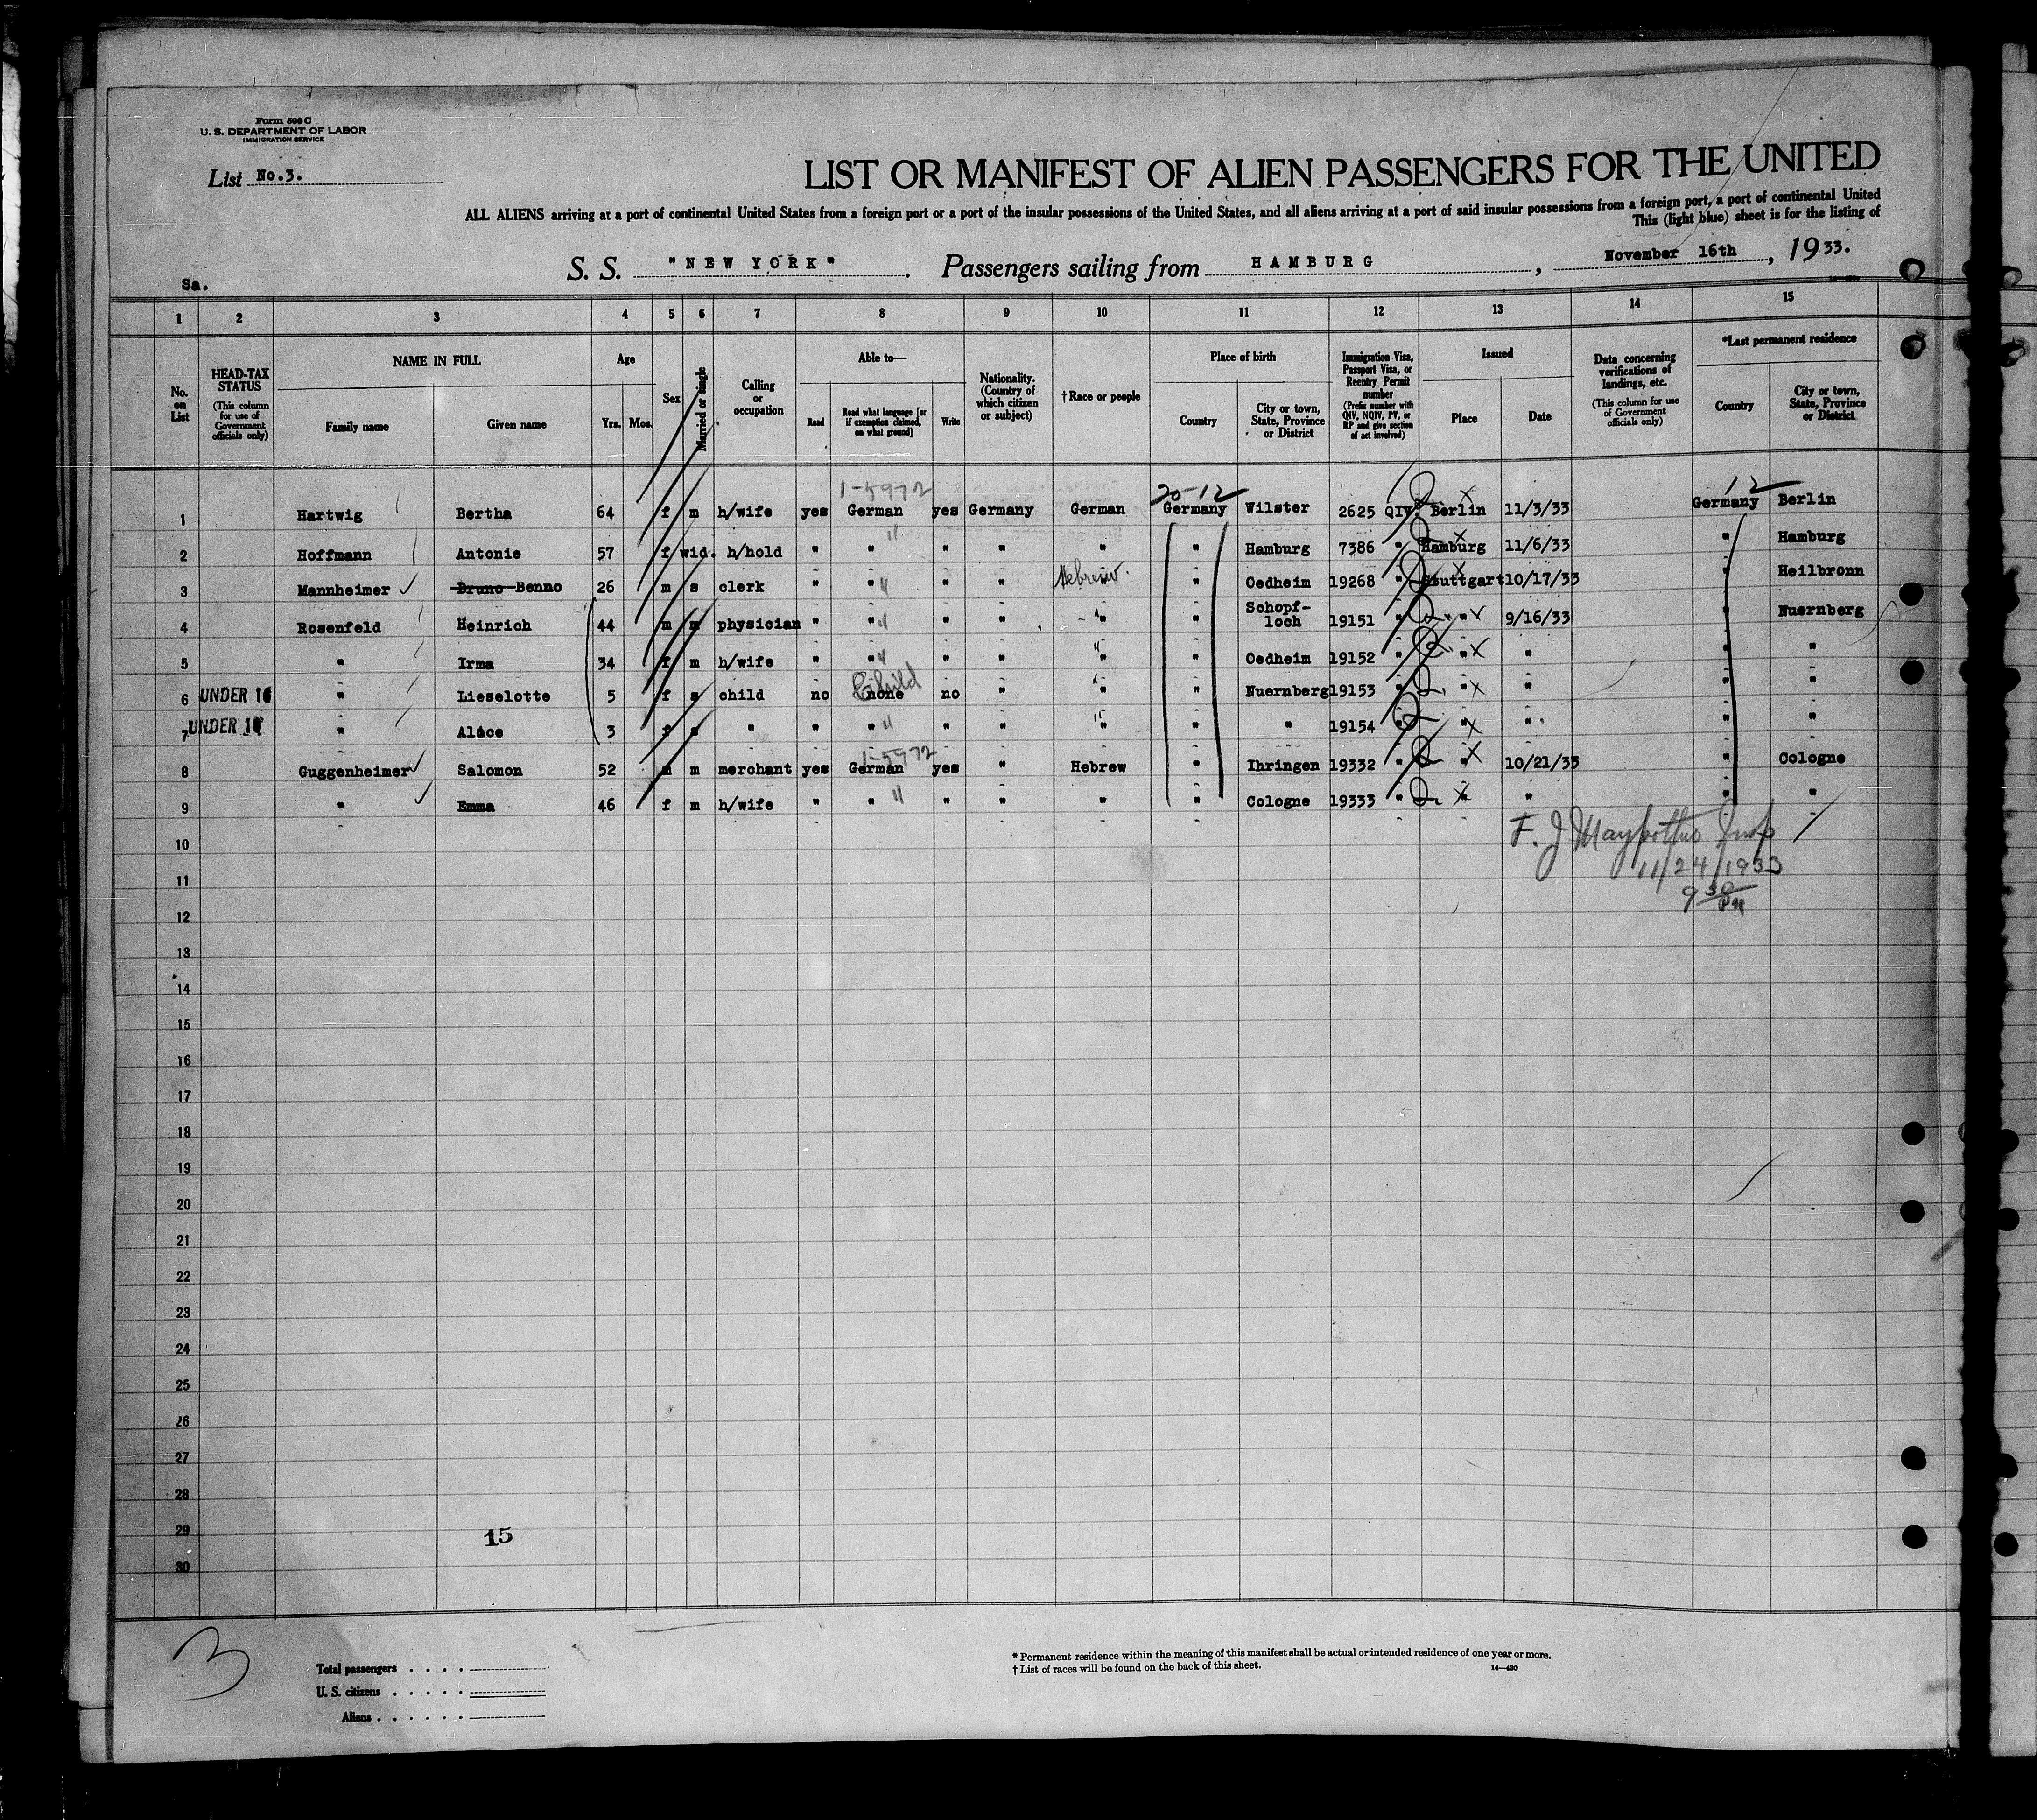 Form 500 C
U. S. DEPARTMENT OF LABOR
IMMIGRATION SERVICE
List No.3.
LIST OR MANIFEST OF ALIEN PASSENGERS FOR THE UNITED
ALL ALIENS arriving at a port of continental United States from a foreign port or a port of the insular possessions of the United States, and all aliens arriving at a port of said insular possessions from a foreign port, a port of continental United
This (light blue) sheet is for the listing of
S. S. "NEW YORK". Passengers sailing from HAMBURG, November 16th, 1933.
Sa.
1 2 3 4 5 6 7 8 9 10 11 12 13 14 15
No. on List
HEAD-TAX STATUS (This column for use of Government officials only)
NAME IN FULL
Family name Given name
Age
Yrs. Mos.
Sex
Married or single
Calling or occupation
Able to—
Read Read what language [or if exemption claimed, on what ground] Write
Nationality. (Country of which citizen or subject)
†Race or people
Place of birth
Country City or town, State, Province or District
Immigration Visa, Passport Visa, or Reentry Permit number (Prefix number with QIV, NQIV, PV, or RP and give section of act involved)
Issued
Place Date
Data concerning verifications of landings, etc. (This column for use of Government officials only)
*Last permanent residence
Country City or town, State, Province or District
1-5972 20-12 12
1 Hartwig Bertha 64 f m h/wife yes German yes Germany German Germany Wilster 2625 QIV. Berlin 11/3/33 Germany Berlin
2 Hoffmann Antonie 57 f wid. h/hold " " " " " " Hamburg 7386 " Hamburg 11/6/33 " Hamburg
3 Mannheimer Bruno Benno 26 m s clerk " " " " Hebrew. " Oedheim 19268 " Stuttgart 10/17/33 " Heilbronn
4 Rosenfeld Heinrich 44 m m physician " " " " " " Schopf-
loch 19151 " " 9/16/33 " Nuernberg
5 " Irma 34 f m h/wife " " " " " " Oedheim 19152 " " " " "
6 UNDER 16 " Lieselotte 5 f s child no none Child no " " " Nuernberg 19153 " " " " "
7 UNDER 16 " Alice 3 f s " " " " " " " " 19154 " " " " "
1-5972
8 Guggenheimer Salomon 52 m m merchant yes German yes " Hebrew " Ihringen 19332 " " 10/21/33 " Cologne
9 " Emma 46 f m h/wife " " " " " " Cologne 19333 " " " " "
10
11/24/1933
11
9 30 PM
12
13
14
15
16
17
18
19
20
21
22
23
24
25
26
27
28
29
15
30
3
Total passengers . . . .
U. S. citizens . . . . .
Aliens . . . . . .
* Permanent residence within the meaning of this manifest shall be actual or intended residence of one year or more.
† List of races will be found on the back of this sheet. 14—430